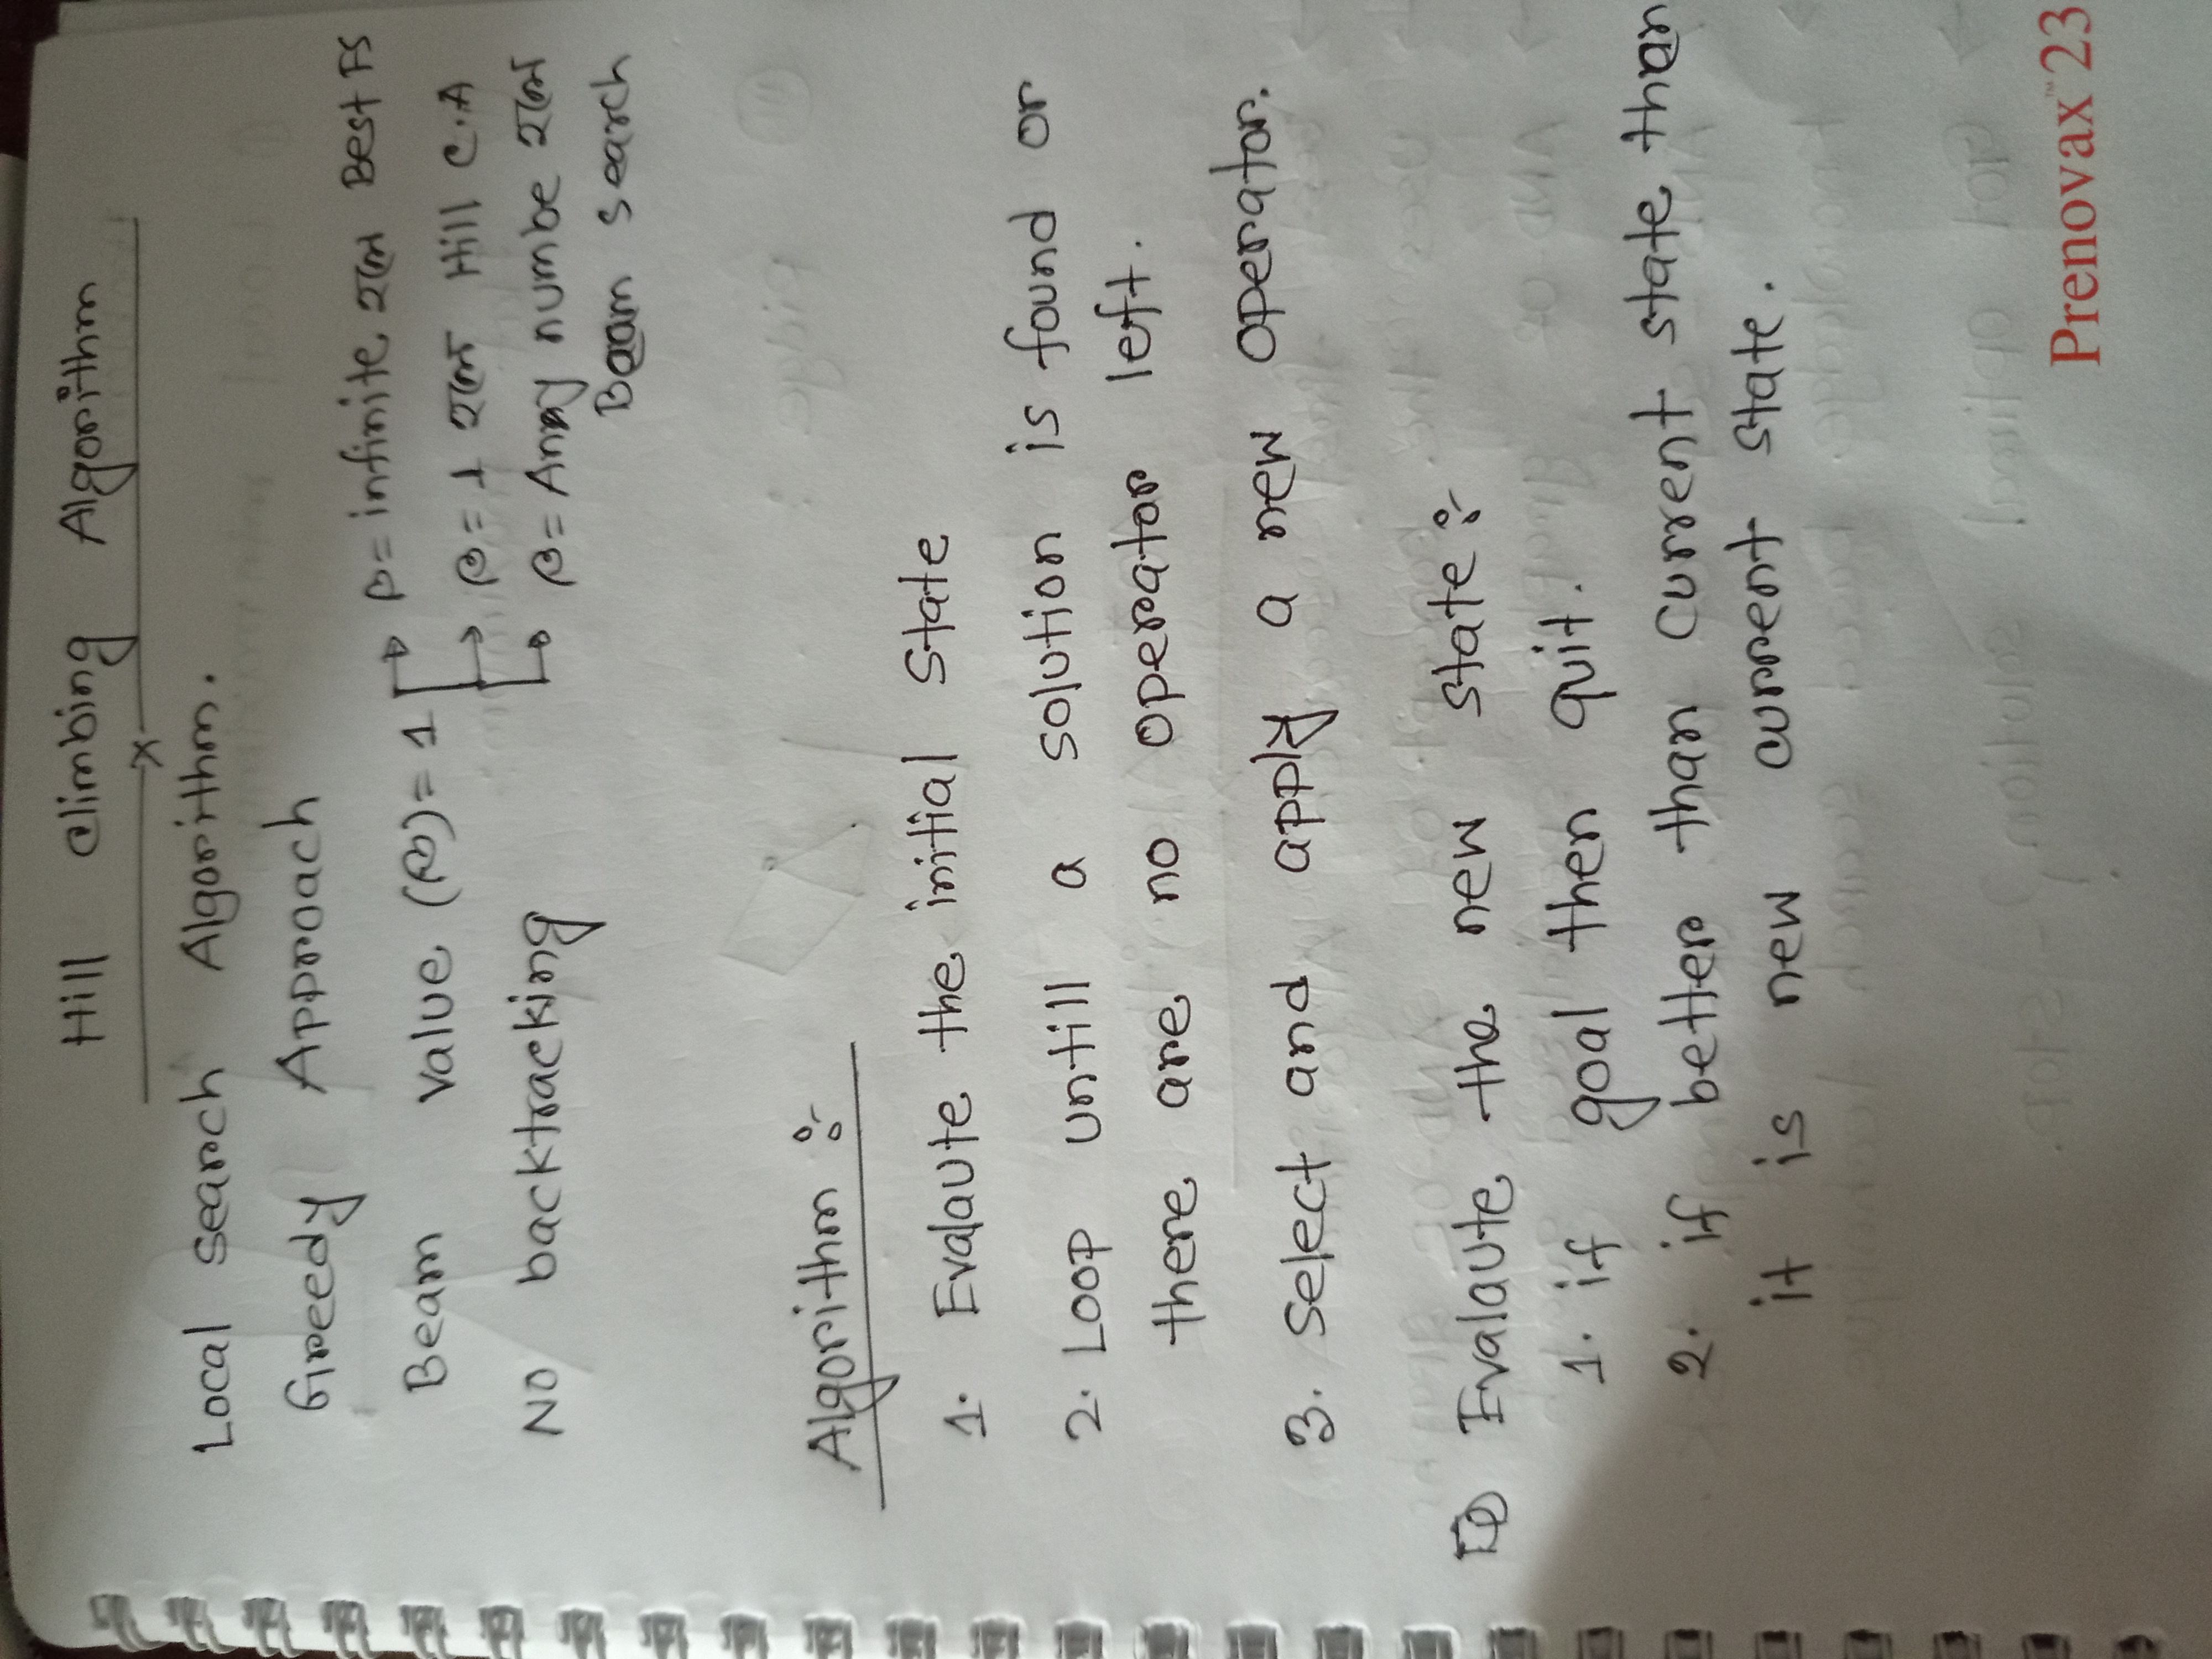 Hill Climbing Algorithm
Local search Algorithm.
Greedy Approach
Beam Value (β) = 1
β = infinite হলে Best FS
β = 1 হলে Hill C.A
β = Any numbe হলে
Beam Search
No backtracking
Algorithm :-
1. Evalaute the initial State
2. Loop untill a solution is found or
there are no operator left.
3. Select and apply a new operator.
Evalaute the new state :-
1. if goal then quit.
2. if better than current state then
it is new current state.
Prenovax™ 23